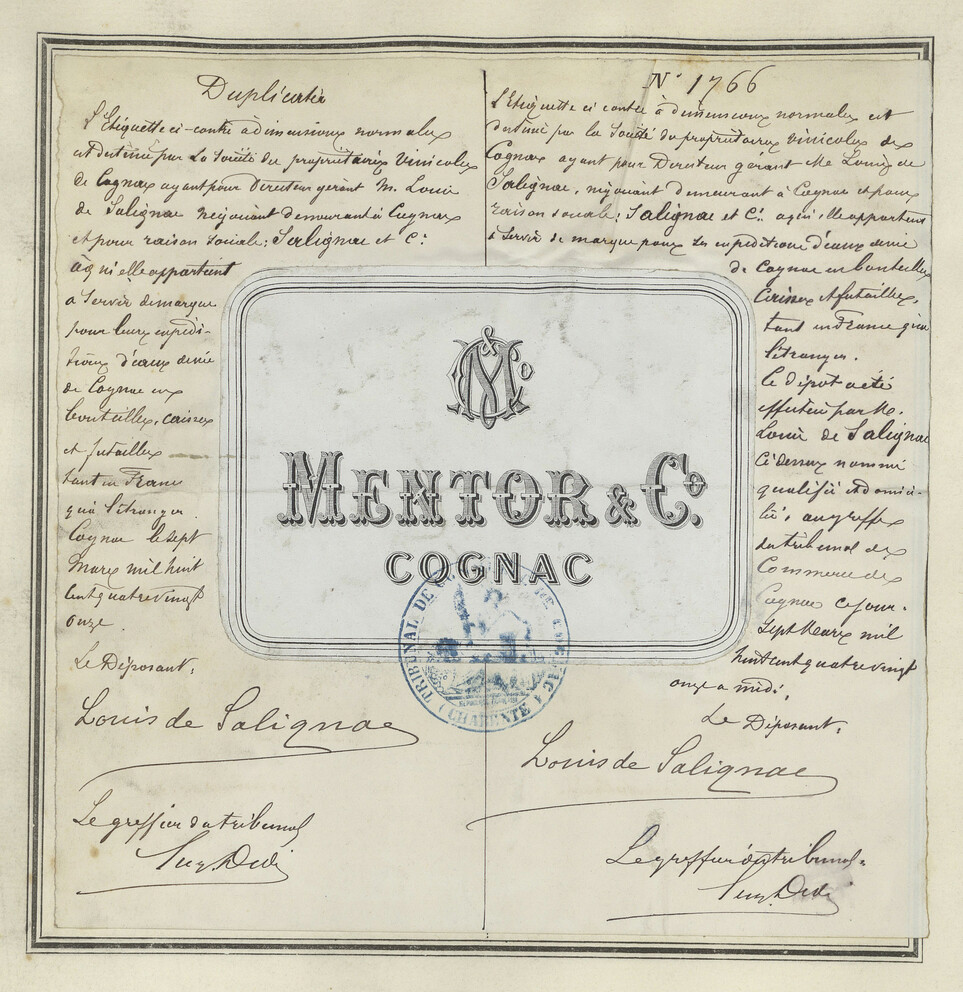 Duplicata
L'Etiquette ci-contre à dimensions normales
est destinée par La Société des propriétaires Vinicoles
de Cognac ayant pour Directeur gérant M. Louis
de Salignac négociant demeurant à Cognac
et pour raison sociale: Salignac et Cie
à qui elle appartient
a Servir de marque
pour leurs expédi-
tions d'eaux de vie
de Cognac en
bouteilles, caisses
et futailles
tant en France
qu'à l'étranger.
Cognac le sept
Mars mil huit
cent quatre vingt
onze.
Le Déposant,
Louis de Salignac
Le greffier du tribunal
N° 1766
L'Etiquette ci contre à dimensions normales est
destinée par la Société des propriétaires vinicoles de
Cognac ayant pour Directeur gérant Mr Louis de
Salignac, négociant demeurant à Cognac et pour
raison sociale: Salignac et Cie à qui elle appartient
à Servir de marque pour les expéditions d'eaux de vie
de Cognac en bouteilles
Caisses & futailles,
tant en France qu'à
l'étranger.
Le dépôt a été
effectué par M.
Louis de Salignac
Ci dessus nommé
qualifié et domici-
lié, au greffe
du tribunal de
Commerce de
Cognac ce jour.
Sept Mars mil
huit cent quatre vingt
onze a midi,
Le Déposant,
Louis de Salignac
Le greffier du tribunal
M & Co
MENTOR & Co.
COGNAC
TRIBUNAL DE COGNAC
(CHARENTE)